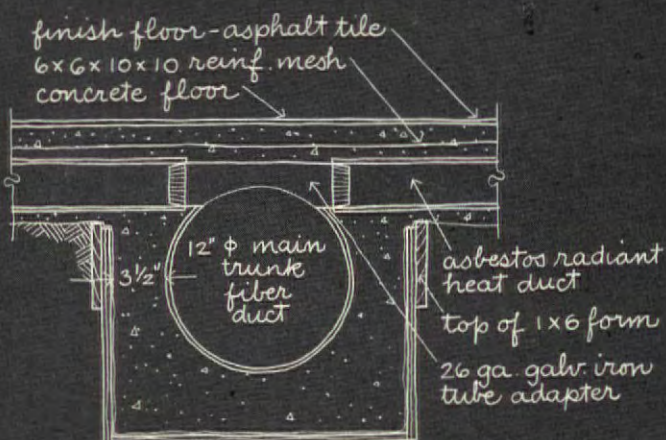 finish floor - asphalt tile
6x6x10x10 reinf. mesh
concrete floor
12" ϕ main
trunk
fiber
duct
3 1/2"
asbestos radiant
heat duct
top of 1x6 form
26 ga. galv. iron
tube adapter